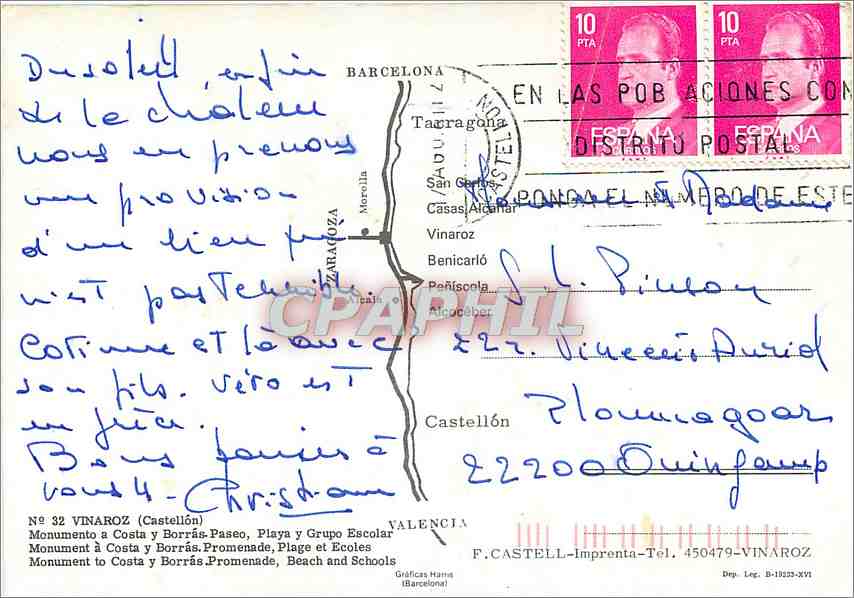 Du soleil, enfin
de la chaleur
nous en prenons
une provision
d'un lieu qui
n'est pas terrible.
Corinne est là avec
son fils. Véro est
en Grèce.
Bons baisers à
vous 4 - Christiane
BARCELONA
Tarragona
San Carlos
Casas Alcanar
Vinaroz
Benicarló
Peñíscola
Alcocéber
Castellón
VALENCIA
Morella
ZARAGOZA
Alcalá
10
PTA
ESPAÑA
CORREOS
10
PTA
ESPAÑA
CORREOS
CASTELLON
EN LAS POBLACIONES CON
DISTRITO POSTAL
PONGA EL NUMERO DE ESTE
Monsieur et Madame
G. L. Pinson
22 r. Vincent Auriol
Ploumagoar
22200 Guingamp
CPAPHIL
Nº 32 VINAROZ (Castellón)
Monumento a Costa y Borrás-Paseo, Playa y Grupo Escolar
Monument à Costa y Borrás.Promenade, Plage et Ecoles
Monument to Costa y Borrás.Promenade, Beach and Schools
Gráficas Harris
(Barcelona)
F. CASTELL-Imprenta-Tel. 450479-VINAROZ
Dep. Leg. B-19233-XVI